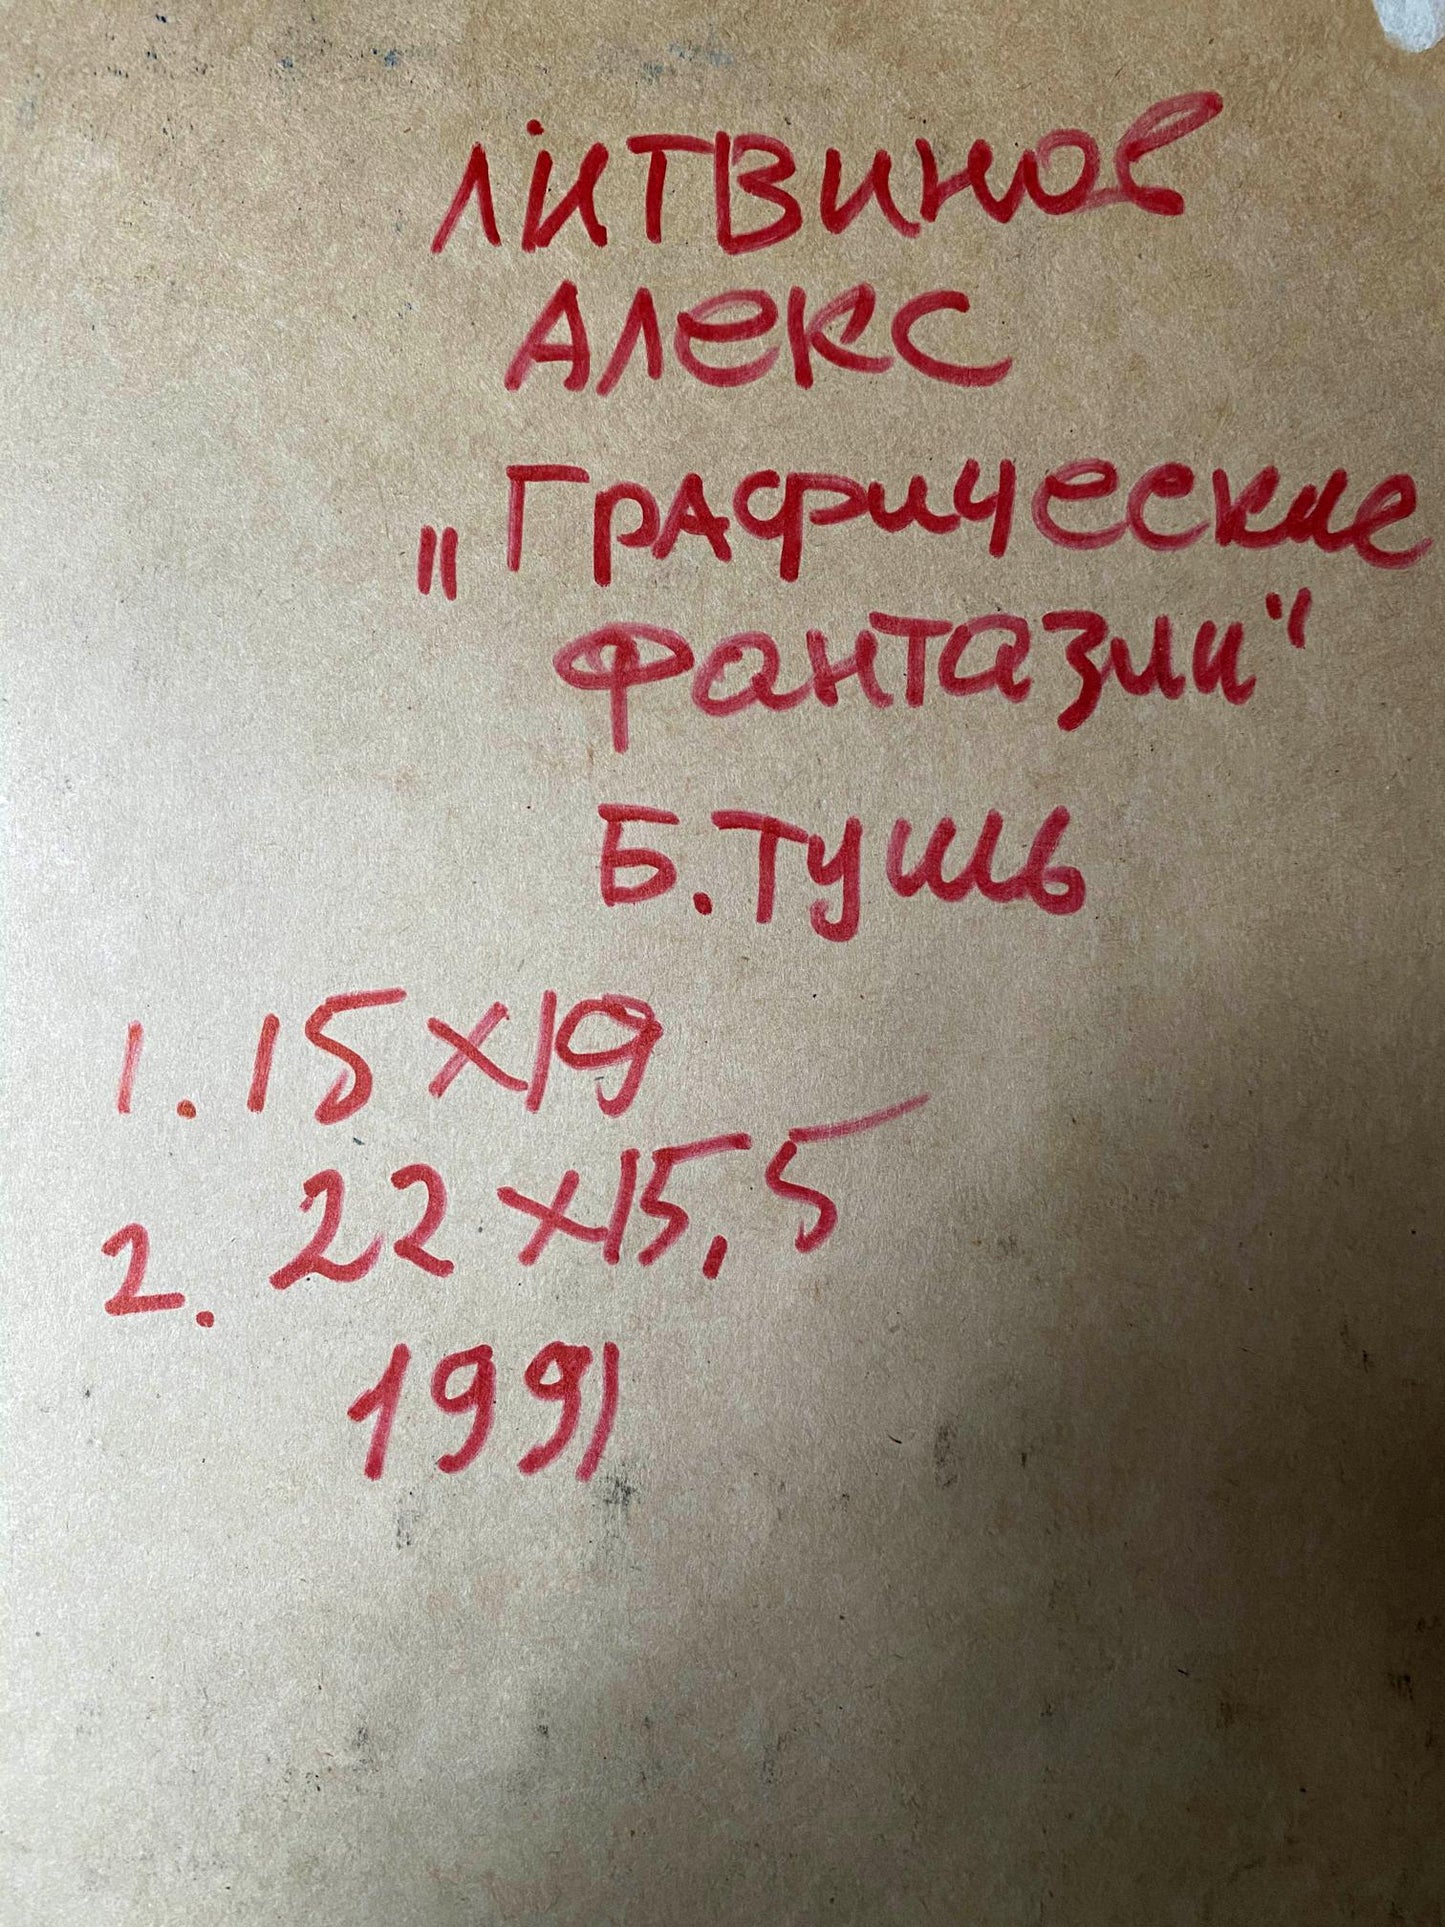 Литвинов
Алекс
„Графические
фантазии"
Б. тушь
1. 15x19
2. 22x15,5
1991